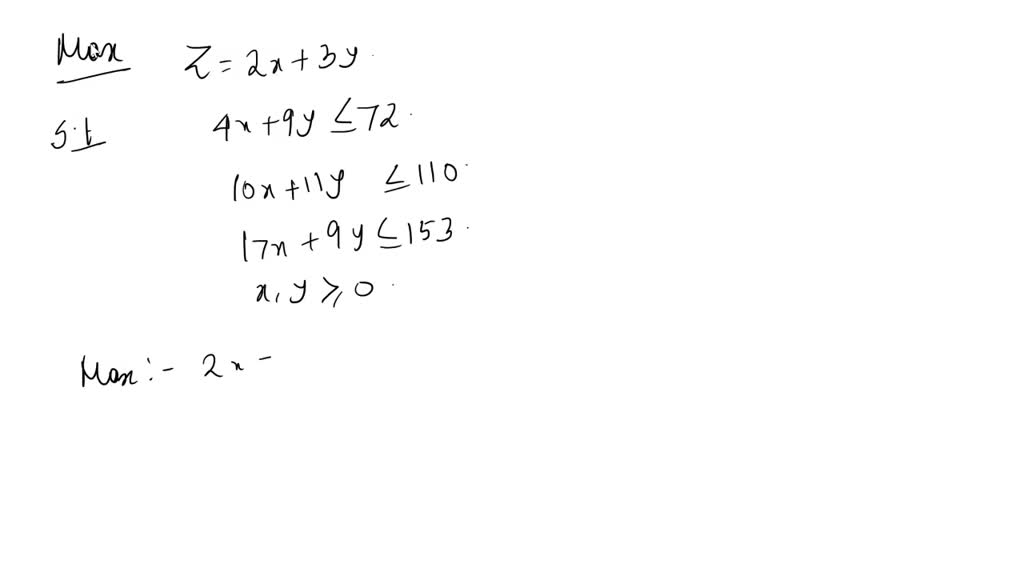 Max Z = 2x + 3y
S.t 4x + 9y ≤ 72
10x + 11y ≤ 110
17x + 9y ≤ 153
x, y ≥ 0
Max :- 2x -